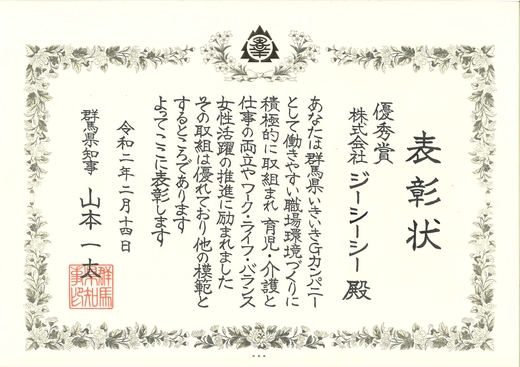 表彰状
優秀賞
株式会社 ジーシーシー 殿
あなたは群馬県いきいきGカンパニー
として働きやすい職場環境づくりに
積極的に取組まれ 育児・介護と
仕事の両立やワーク・ライフ・バランス
女性活躍の推進に励まれました
その取組は優れており他の模範と
するところであります
よってここに表彰します
令和二年二月十四日
群馬県知事 山本一太